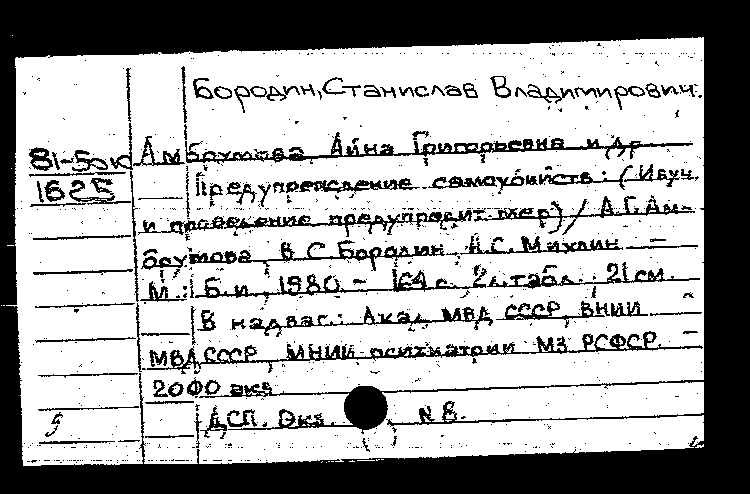 Бородин, Станислав Владимирович.
81-5ою Амбрумова, Айна Григорьевна и др
1625 Предупреждение самоубийств: (Изуч.
и проведение предупредит. мер) / А.Г. Ам-
брумова, В С. Бородин, А.С. Михлин. –
М.: Б. и., 1980. – 164 с., 2 л. табл.; 21 см.
В надзаг.: Акад МВД СССР, ВНИИ
МВД СССР, МНИИ психиатрии МЗ РСФСР. –
2000 экз
5 ДСП. Экз. N 8.